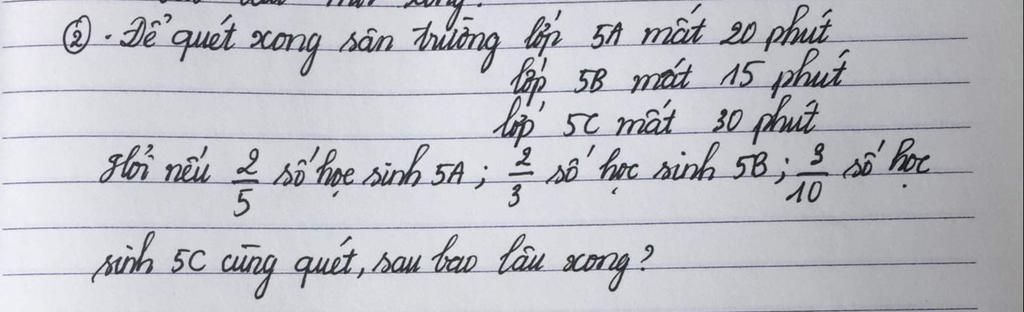 ②. Để quét xong sân trường lớp 5A mất 20 phút
lớp 5B mất 15 phút
lớp 5C mất 30 phút
Hỏi nếu 2/5 số học sinh 5A; 2/3 số học sinh 5B; 3/10 số học
sinh 5C cùng quét, sau bao lâu xong?